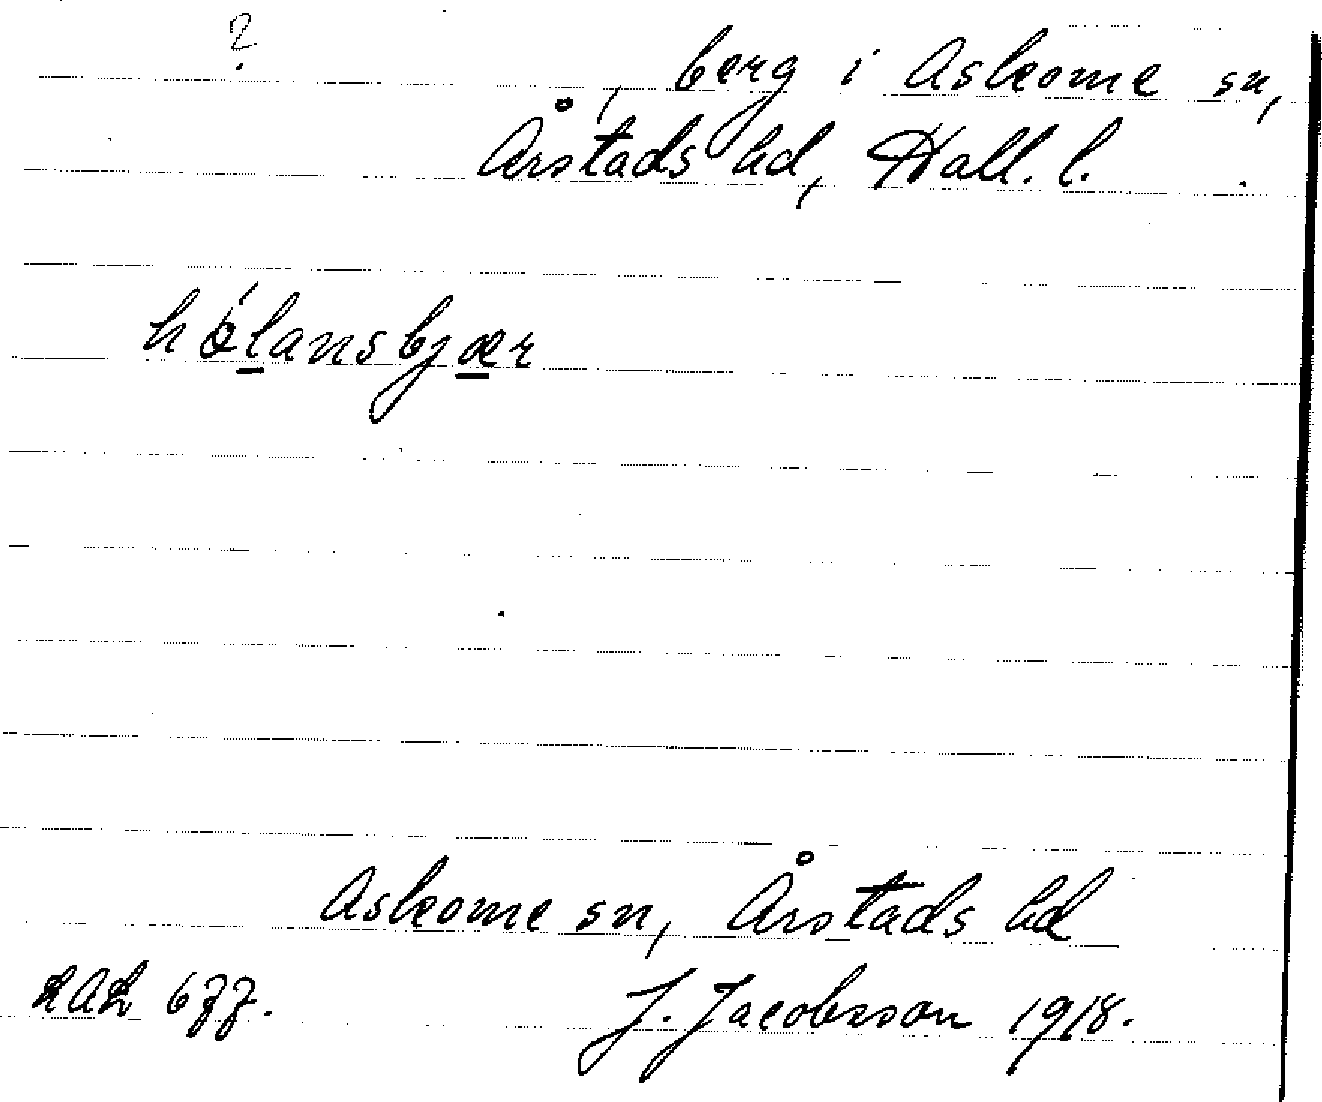 ?
, berg i Askome sn,
Årstads hd, Hall. l.
hólansbjær
Askome sn, Årstads hd
LAL 677. J. Jacobsson 1918.